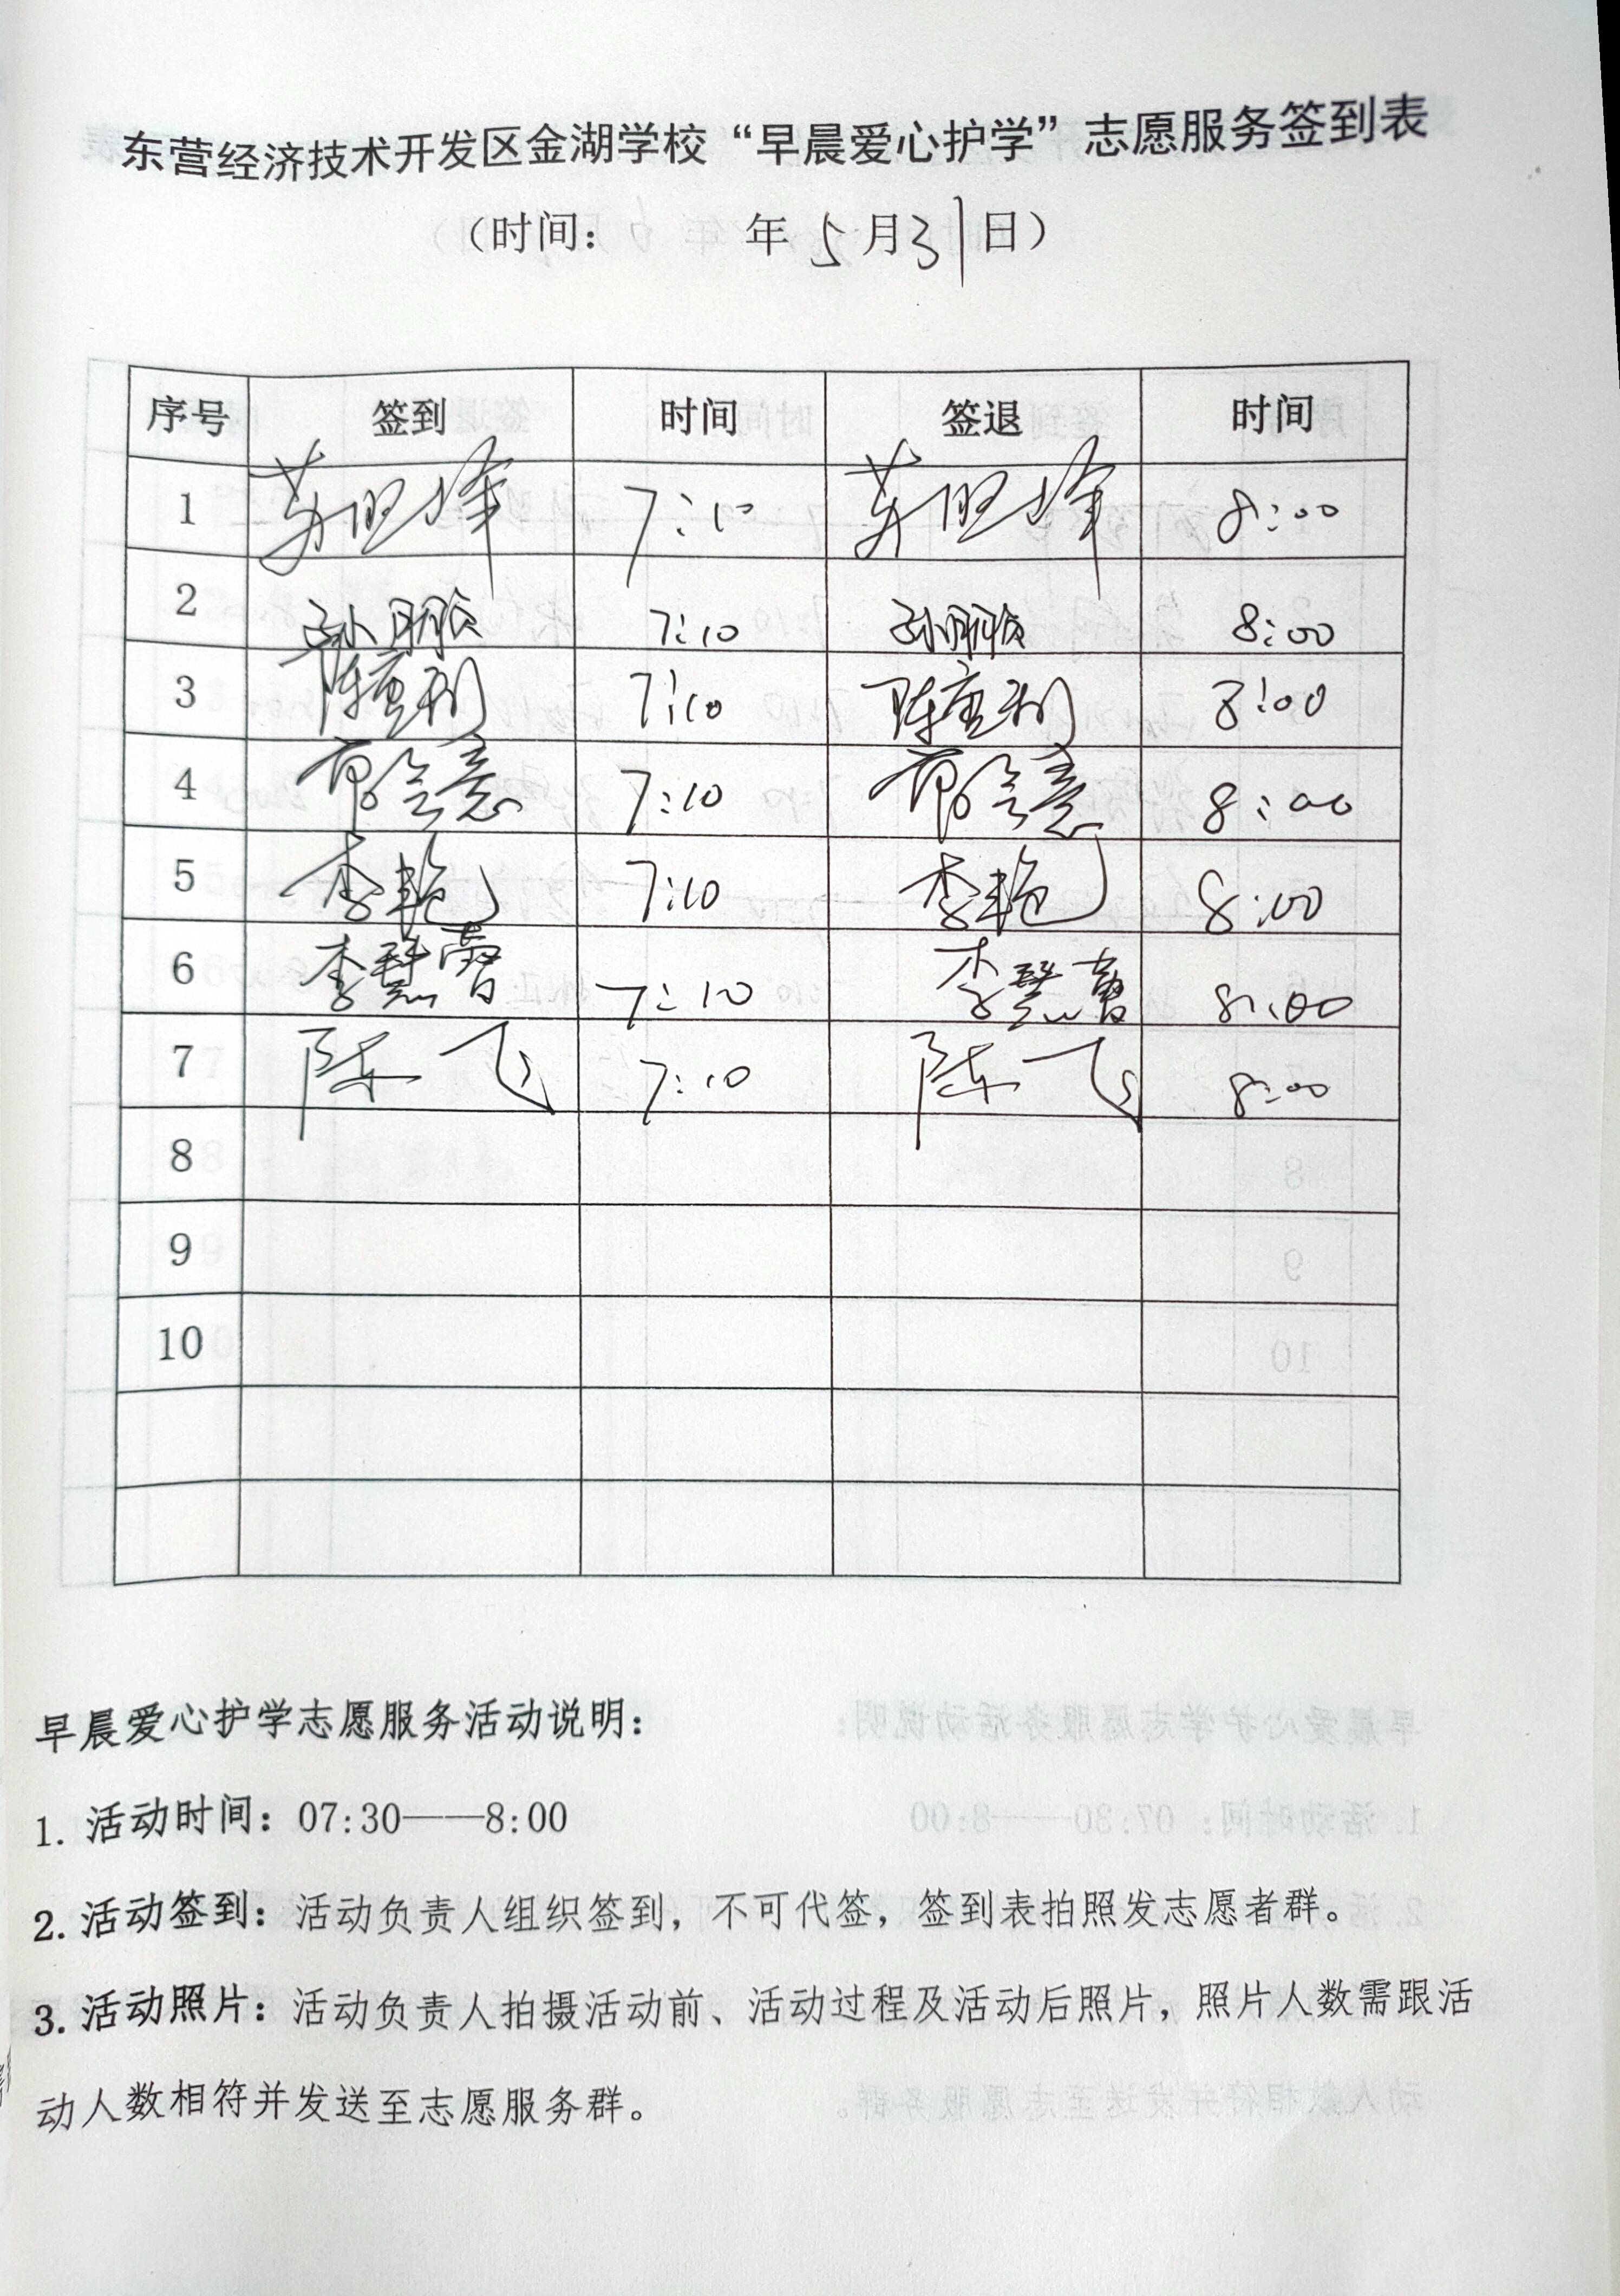 东营经济技术开发区金湖学校“早晨爱心护学”志愿服务签到表
（时间： 年 5 月 31 日）
序号 签到 时间 签退 时间
1 7:10 8:00
2 孙 7:10 孙 8:00
3 陈 7:10 陈 8:00
4 7:10 8:00
5 李艳 7:10 李艳 8:00
6 李慧 7:10 李慧 8:00
7 陈飞 7:10 陈飞 8:00
8
9
10
早晨爱心护学志愿服务活动说明：
1. 活动时间：07:30——8:00
2. 活动签到：活动负责人组织签到，不可代签，签到表拍照发志愿者群。
3. 活动照片：活动负责人拍摄活动前、活动过程及活动后照片，照片人数需跟活
动人数相符并发送至志愿服务群。